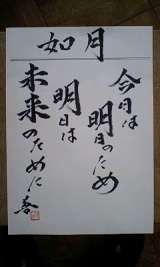 如月
今日は
明日のため
明日は
未来のために